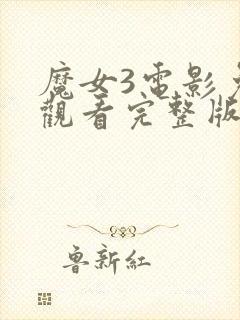 魔女3電影
觀看完整版
魯新紅